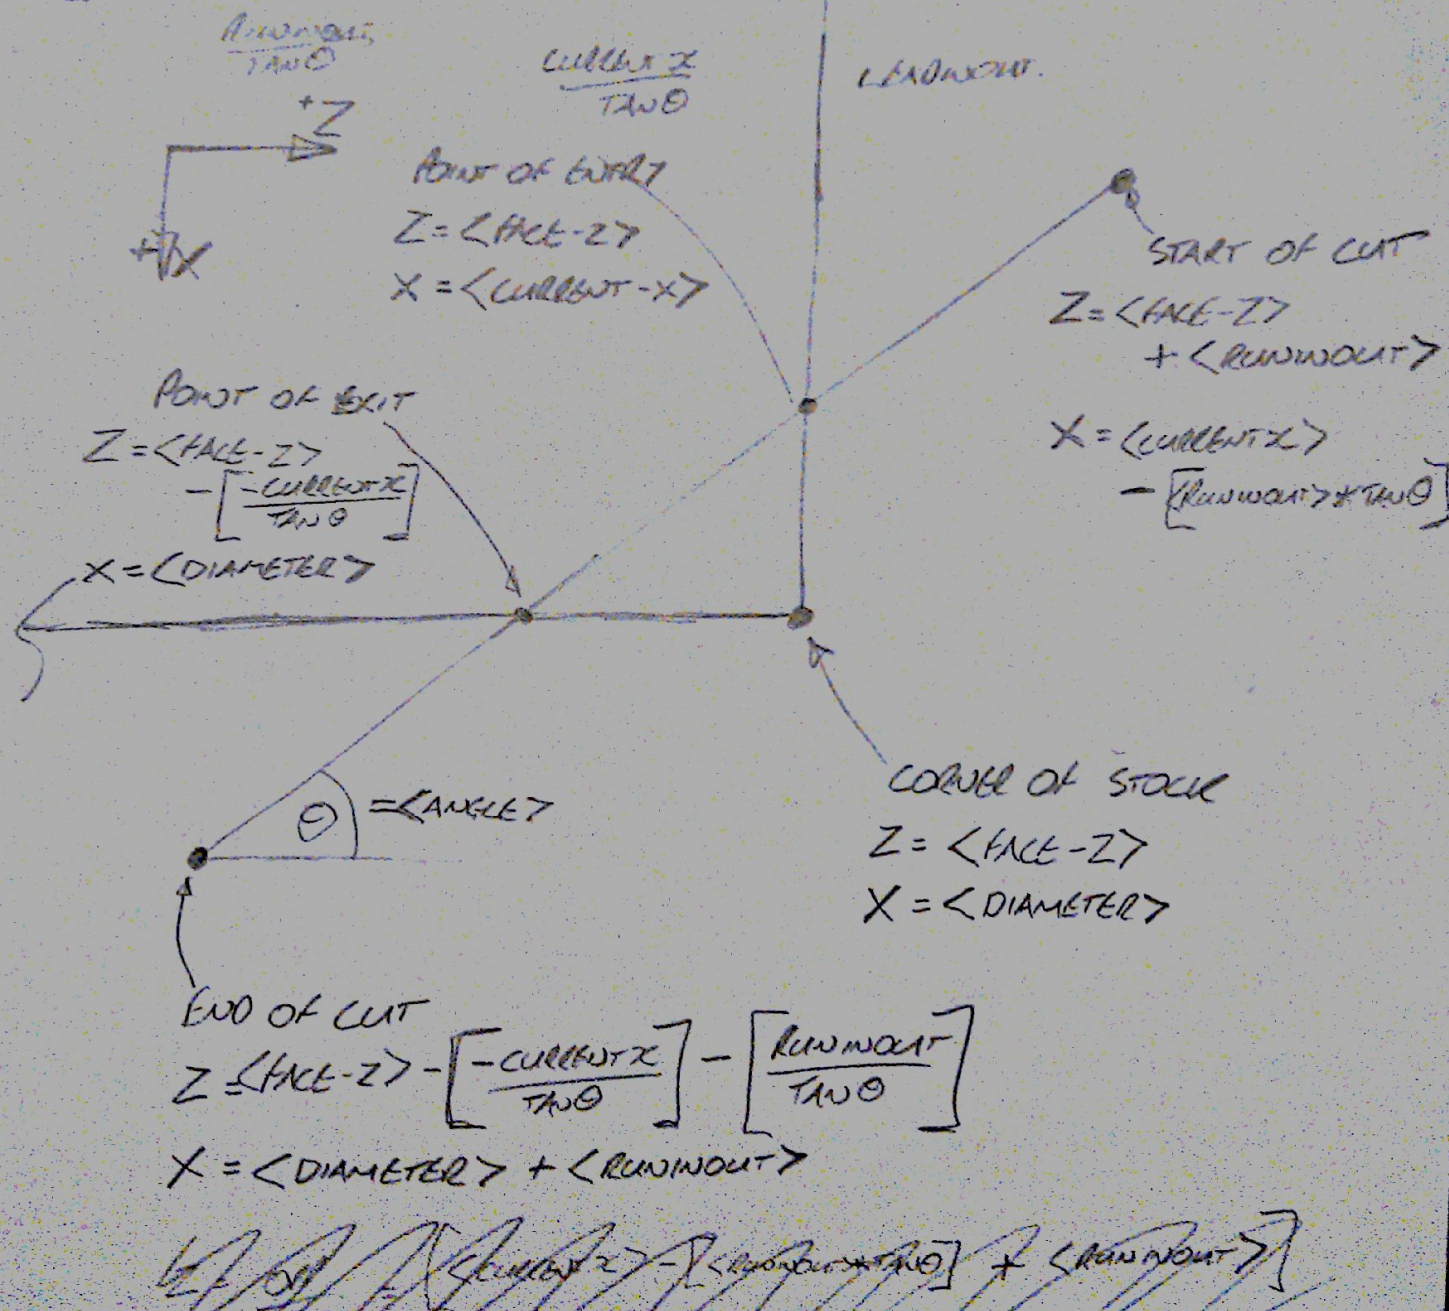 RUNINOUT
TANΘ
CURRENT X
TANΘ
+Z
+X
POINT OF ENTRY
Z=<FACE-Z>
X=<CURRENT-X>
START OF CUT
Z=<FACE-Z>
+<RUNINOUT>
X=<CURRENTX>
-[<RUNINOUT>*TANΘ]
POINT OF EXIT
Z=<FACE-Z>
-[-CURRENTX
TANΘ]
X=<DIAMETER>
Θ =<ANGLE>
CORNER OF STOCK
Z=<FACE-Z>
X=<DIAMETER>
END OF CUT
Z=<FACE-Z>-[-CURRENTX/TANΘ]-[RUNINOUT/TANΘ]
X=<DIAMETER>+<RUNINOUT>
[<CURRENTX>-[<RUNINOUT*TANΘ] + <RUNINOUT>]